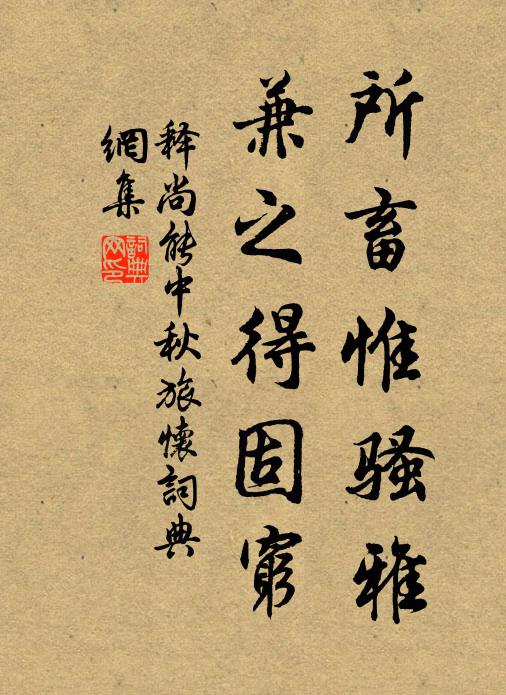 所畜惟骚雅
兼之得固窮
释尚能中秋旅懷詞典
網集
詞典网印